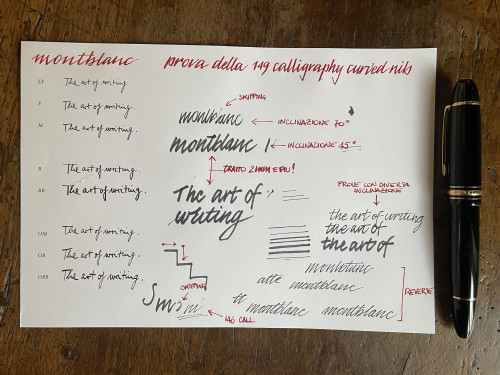 montblanc
prova della 149 calligraphy curved nib
EF The art of writing
F The art of writing.
M The art of writing.
B The art of writing.
BB The art of writing.
OM The art of writing.
OB The art of writing.
OBB The art of writing.
SKIPPING
montblanc ← INCLINAZIONE 70°
montblanc | ← INCLINAZIONE 45°
TRATTO 2MM E PIU!
The art of
writing
SKIPPING
146 CALL.
PROVE CON DIVERSA
INCLINAZIONE
the art of writing
the art of
the art of
montblanc
atte montblanc
tt montblanc montblanc
REVERSE